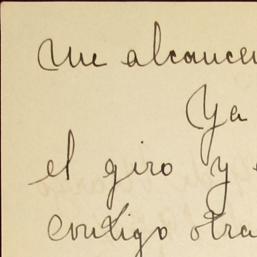 me alcancen
Ya
el giro y
contigo otra